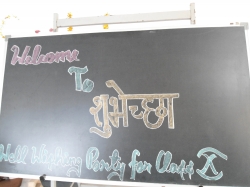 Welcome
To
शुभेच्छा
Well Wishing Party for Class X